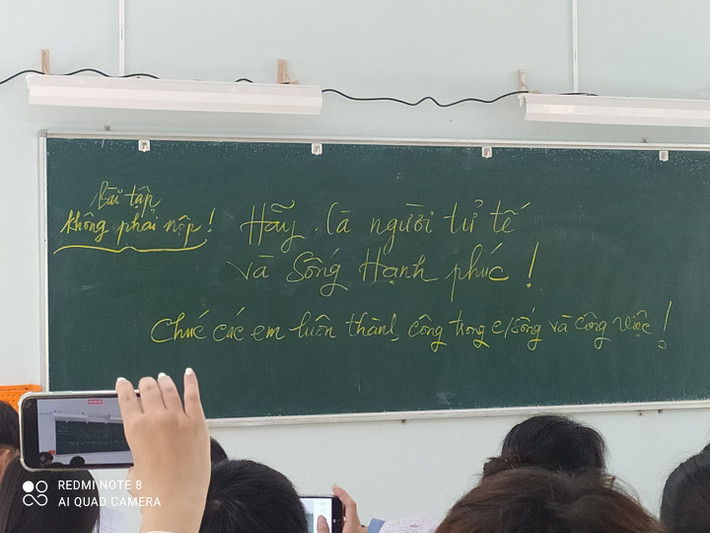 Bài tập
không phải nộp!
Hãy là người tử tế
và Sống Hạnh phúc!
Chúc các em luôn thành công trong c/sống và công việc!
REDMI NOTE 8
AI QUAD CAMERA